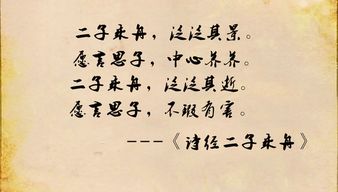 二子乘舟，泛泛其景。
愿言思子，中心养养。
二子乘舟，泛泛其逝。
愿言思子，不瑕有害。
---《诗经二子乘舟》